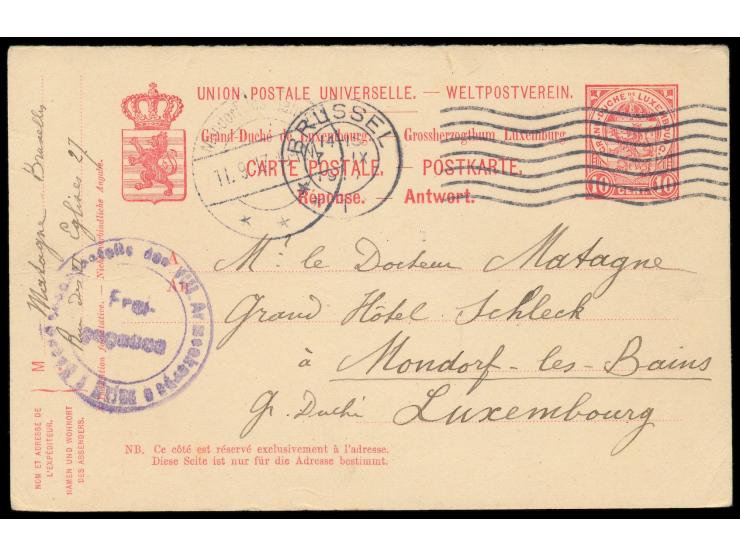 UNION POSTALE UNIVERSELLE. — WELTPOSTVEREIN.
Grand-Duché de Luxembourg. Grossherzogthum Luxemburg.
CARTE POSTALE. — POSTKARTE.
Réponse. — Antwort.
GRAND-DUCHÉ DE LUXEMBOURG
10 CENT. 10
BRÜSSEL
11.9.
A
An
Mr. le Docteur Matagne
Grand Hôtel Schleck
à Mondorf-les-Bains
Gr. Duché Luxembourg
Frei-
gegeben
M Matagne Bruxelles
Rue des Eglises 27
Indication facultative. — Nicht verbindliche Angabe.
NOM ET ADRESSE DE
L'EXPÉDITEUR.
NAMEN UND WOHNORT
DES ABSENDERS.
NB. Ce côté est réservé exclusivement à l'adresse.
Diese Seite ist nur für die Adresse bestimmt.